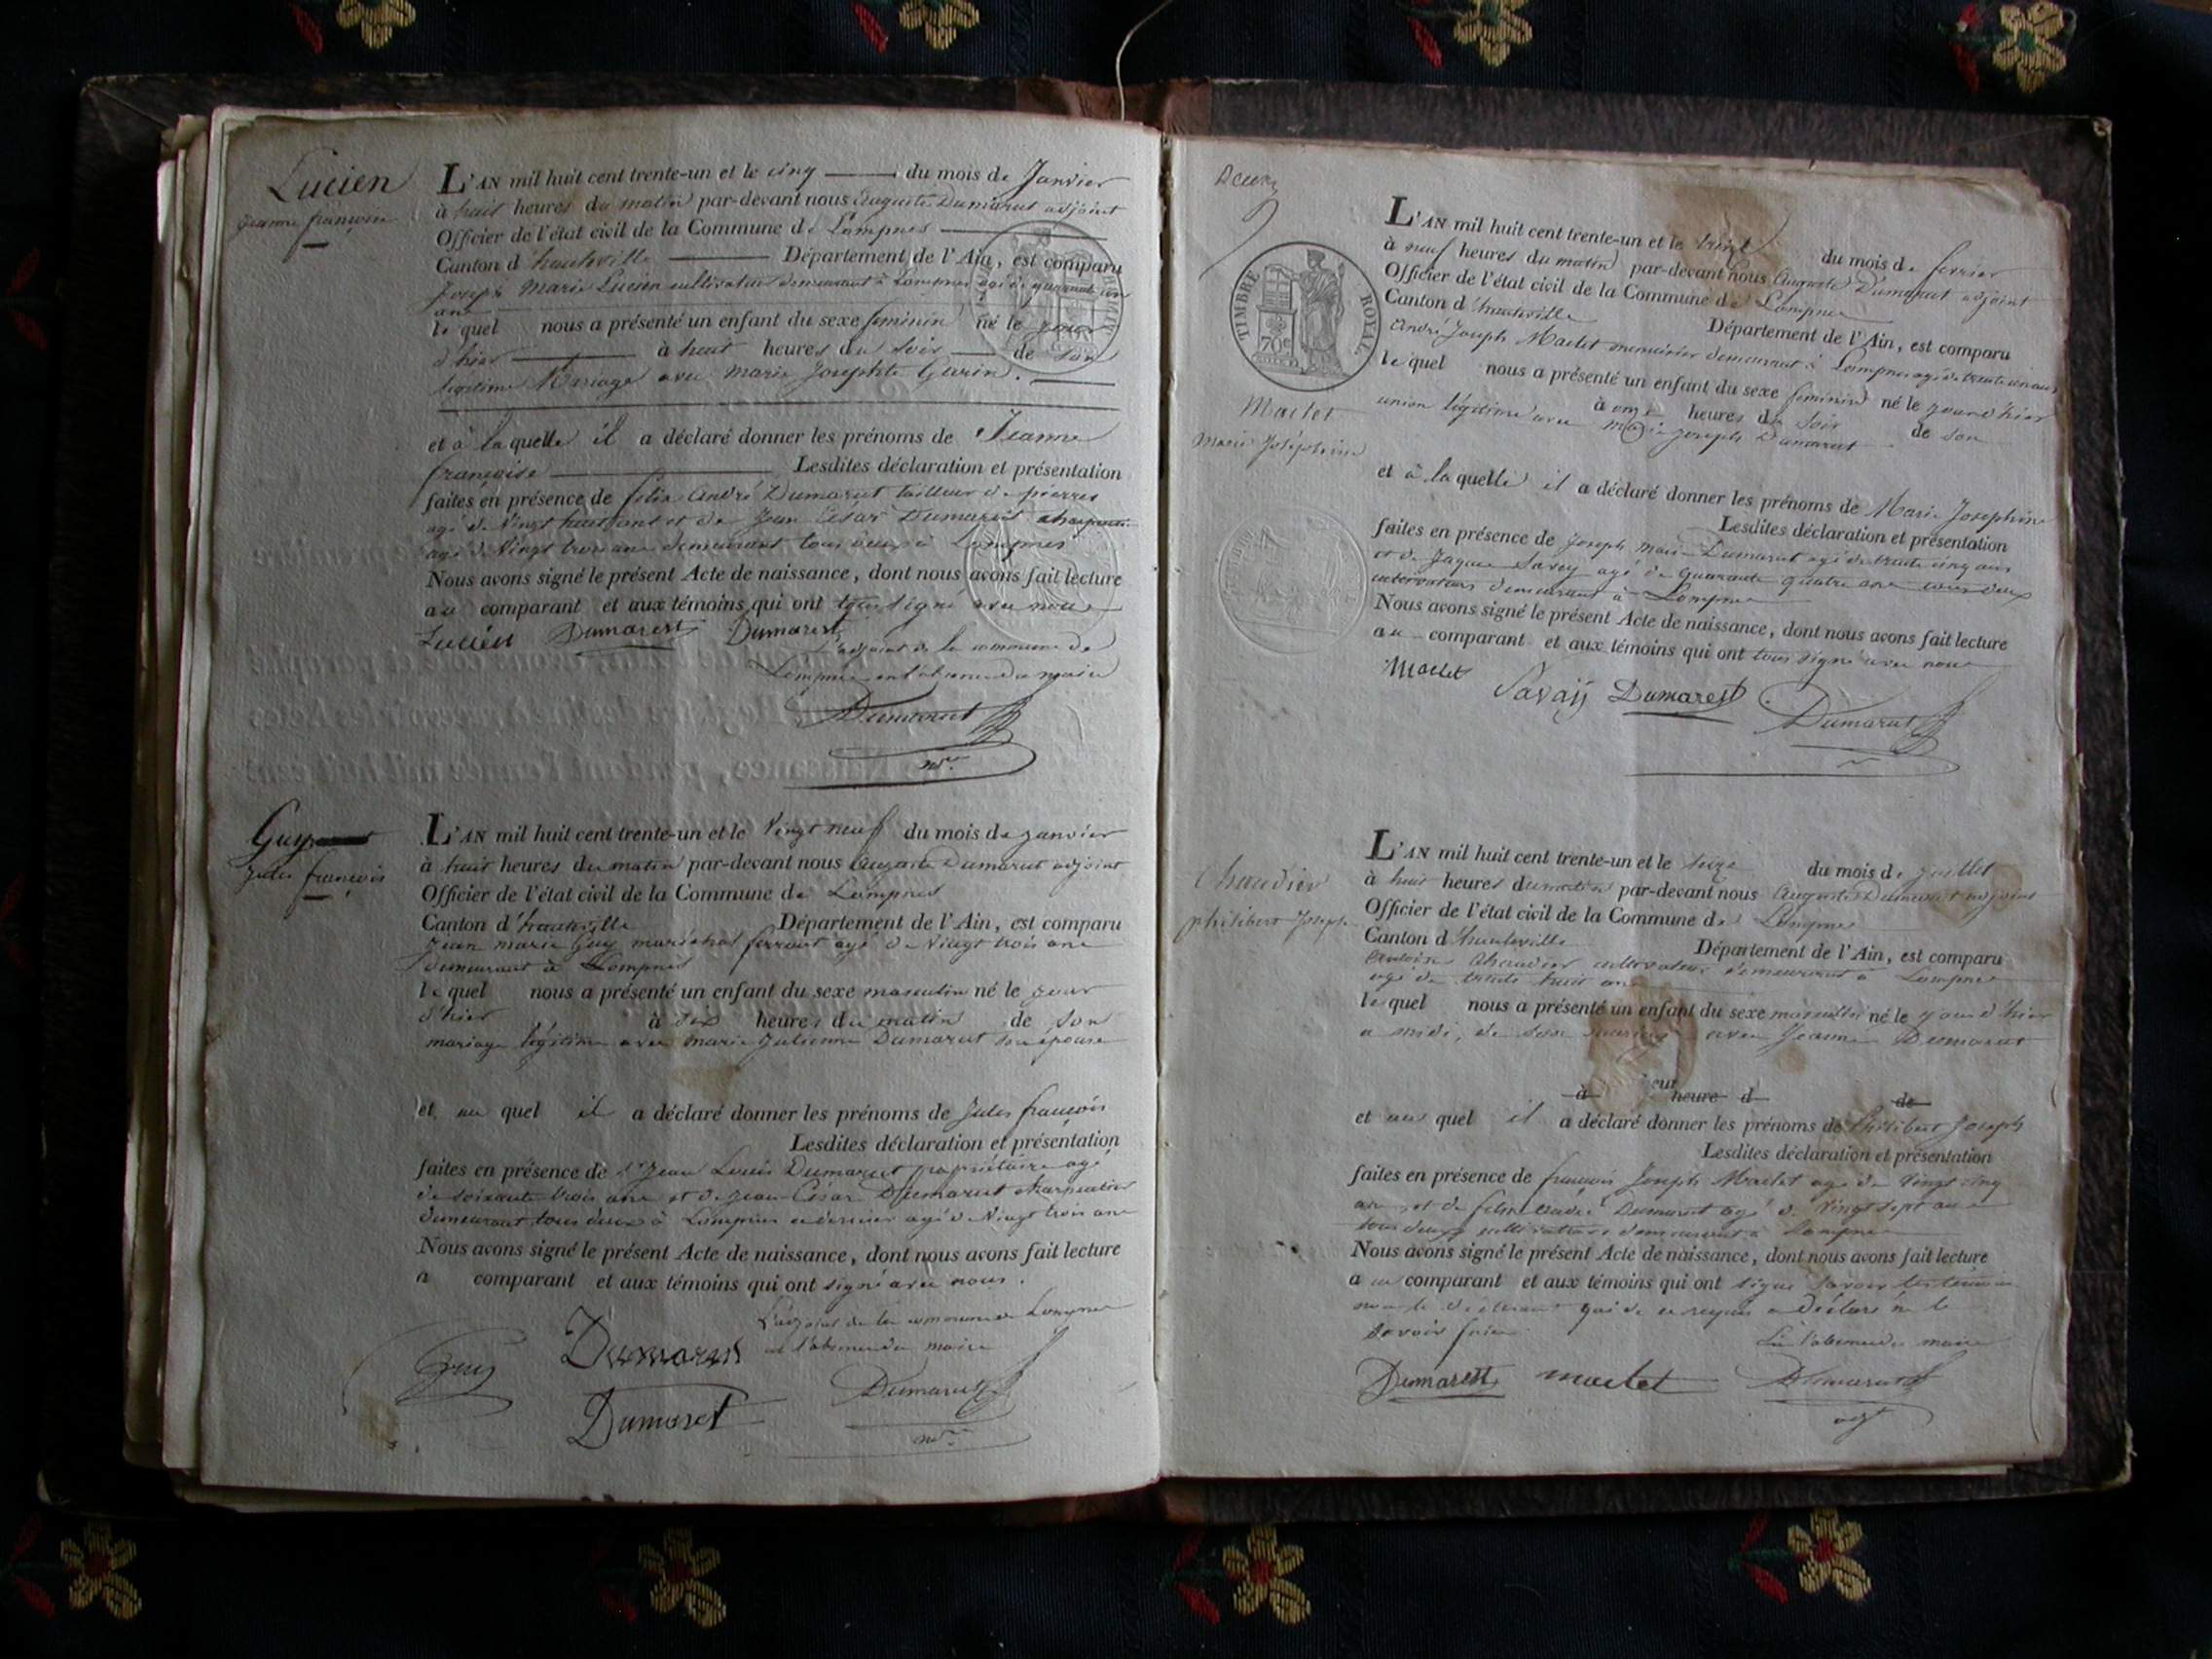 Lucien
jeanne françoise
L'AN mil huit cent trente-un et le cinq du mois de Janvier
à huit heures du matin par-devant nous Auguste Dumarest adjoint
Officier de l'état civil de la Commune de Lompnes
Canton d'hauteville Département de l'Ain, est comparu
Joseph Marie Lucien cultivateur demeurant à Lompnes agé de quarante un
ans
le quel nous a présenté un enfant du sexe feminin né le jour
d'hier à huit heures du soir de son
légitime Mariage avec marie Josephte Garin.
et à laquelle il a déclaré donner les prénoms de Jeanne
françoise Lesdites déclaration et présentation
faites en présence de felix andré Dumarest tailleur de pierres
agé de Vingt huit ans et de Jean César Dumarest charpentier
agé de Vingt trois ans demeurant tous deux à Lompnes
Nous avons signé le présent Acte de naissance, dont nous avons fait lecture
au comparant et aux témoins qui ont tous signé avec nous
Lucien Dumarest Dumarest
L'adjoint de la commune de
Lompnes en l'absence du maire
Dumarest
Guy
jules françois
L'AN mil huit cent trente-un et le Vingt neuf du mois de janvier
à huit heures du matin par-devant nous Auguste Dumarest adjoint
Officier de l'état civil de la Commune de Lompnes
Canton d'hauteville Département de l'Ain, est comparu
Jean marie Guy maréchal ferrant agé de Vingt trois ans
demeurant à Lompnes
le quel nous a présenté un enfant du sexe masculin né le jour
d'hier à six heures du matin de son
mariage légitime avec marie Julienne Dumarest son épouse
et au quel il a déclaré donner les prénoms de Jules françois
Lesdites déclaration et présentation
faites en présence de Sr Jean Louis Dumarest propriétaire agé
de soixante trois ans et de jean César Dumarest charpentier
demeurant tous deux à Lompnes ce dernier agé de Vingt trois ans
Nous avons signé le présent Acte de naissance, dont nous avons fait lecture
a comparant et aux témoins qui ont signé avec nous.
L'adjoint de la commune de Lompnes
en l'absence du maire
Guy Dumarest
Dumarest Dumarest
Deux
TIMBRE ROYAL
70c
Maclet
Marie Joséphine
L'AN mil huit cent trente-un et le du mois de fevrier
à neuf heures du matin par-devant nous Auguste Dumarest adjoint
Officier de l'état civil de la Commune de Lompnes
Canton d'hauteville Département de l'Ain, est comparu
André Joseph Maclet menuisier demeurant à Lompnes agé de trente un ans
le quel nous a présenté un enfant du sexe feminin né le jour d'hier
à onze heures du soir de son
union légitime avec marie joseph Dumarest
et à laquelle il a déclaré donner les prénoms de Marie Josephine
Lesdites déclaration et présentation
faites en présence de joseph marie Dumarest agé de trente cinq ans
et de Jaques Savey agé de quarante quatre ans tous deux
cultivateurs demeurant à Lompnes
Nous avons signé le présent Acte de naissance, dont nous avons fait lecture
au comparant et aux témoins qui ont tous signé avec nous
Maclet Savaÿ Dumarest Dumarest
Chaudier
philibert Joseph
L'AN mil huit cent trente-un et le seize du mois de juillet
à huit heures du matin par-devant nous Auguste Dumarest adjoint
Officier de l'état civil de la Commune de Lompnes
Canton d'hauteville Département de l'Ain, est comparu
Antoine Chaudier cultivateur demeurant à Lompnes
agé de trente huit ans
le quel nous a présenté un enfant du sexe masculin né le jour d'hier
a midi, de son mariage avec Jeanne Dumarest
à heure d de
et au quel il a déclaré donner les prénoms de Philibert Joseph
Lesdites déclaration et présentation
faites en présence de françois Joseph Maclet agé de Vingt cinq
ans, et de felix andré Dumarest agé de Vingt sept ans
tous deux cultivateurs demeurant à Lompnes
Nous avons signé le présent Acte de naissance, dont nous avons fait lecture
au comparant et aux témoins qui ont signé savoir les témoins
non le déclarant qui de ce requis a déclaré ne le
savoir faire
En l'absence du maire
Dumarest maclet Dumarest
adjt